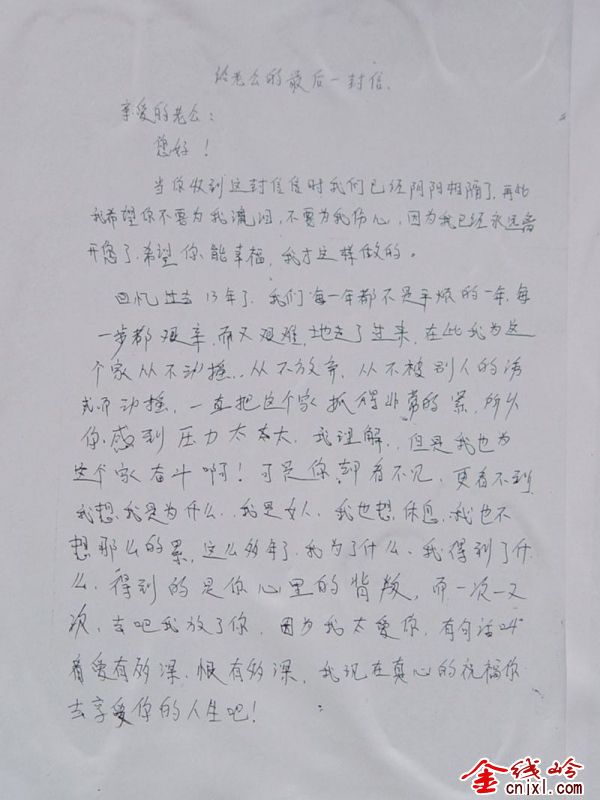 给老公的最后一封信.
亲爱的老公:
您好!
当你收到这封信信时我们已经阴阳相隔了,再也
我希望你不要为我流泪,不要为我伤心,因为我已经永远离
开您了.希望你能幸福,我才这样做的。
回忆过去13年了,我们每一年都不是平烦的一年,每
一步都艰辛而又艰难,地走了过来,在此我为这
个家从不动摇..从不放弃,从不被别人的诱
式而动摇,一直把这个家抓得非常的紧,所以
你感到压力太太大,我理解,但是我也为
这个家奋斗啊!可是你却看不见,更看不到
我想,我是为什么,我是女人,我也想休息,我也不
想那么的累,这么多年了,我为了什么,我得到了什
么,得到的是你心里的背叛,而一次一又
次,去吧我放了你,因为我太爱你,有句话叫
有爱有多深.恨有多深,我现在真心的祝福你
去享受你的人生吧!
金线岭
cnjxl.com